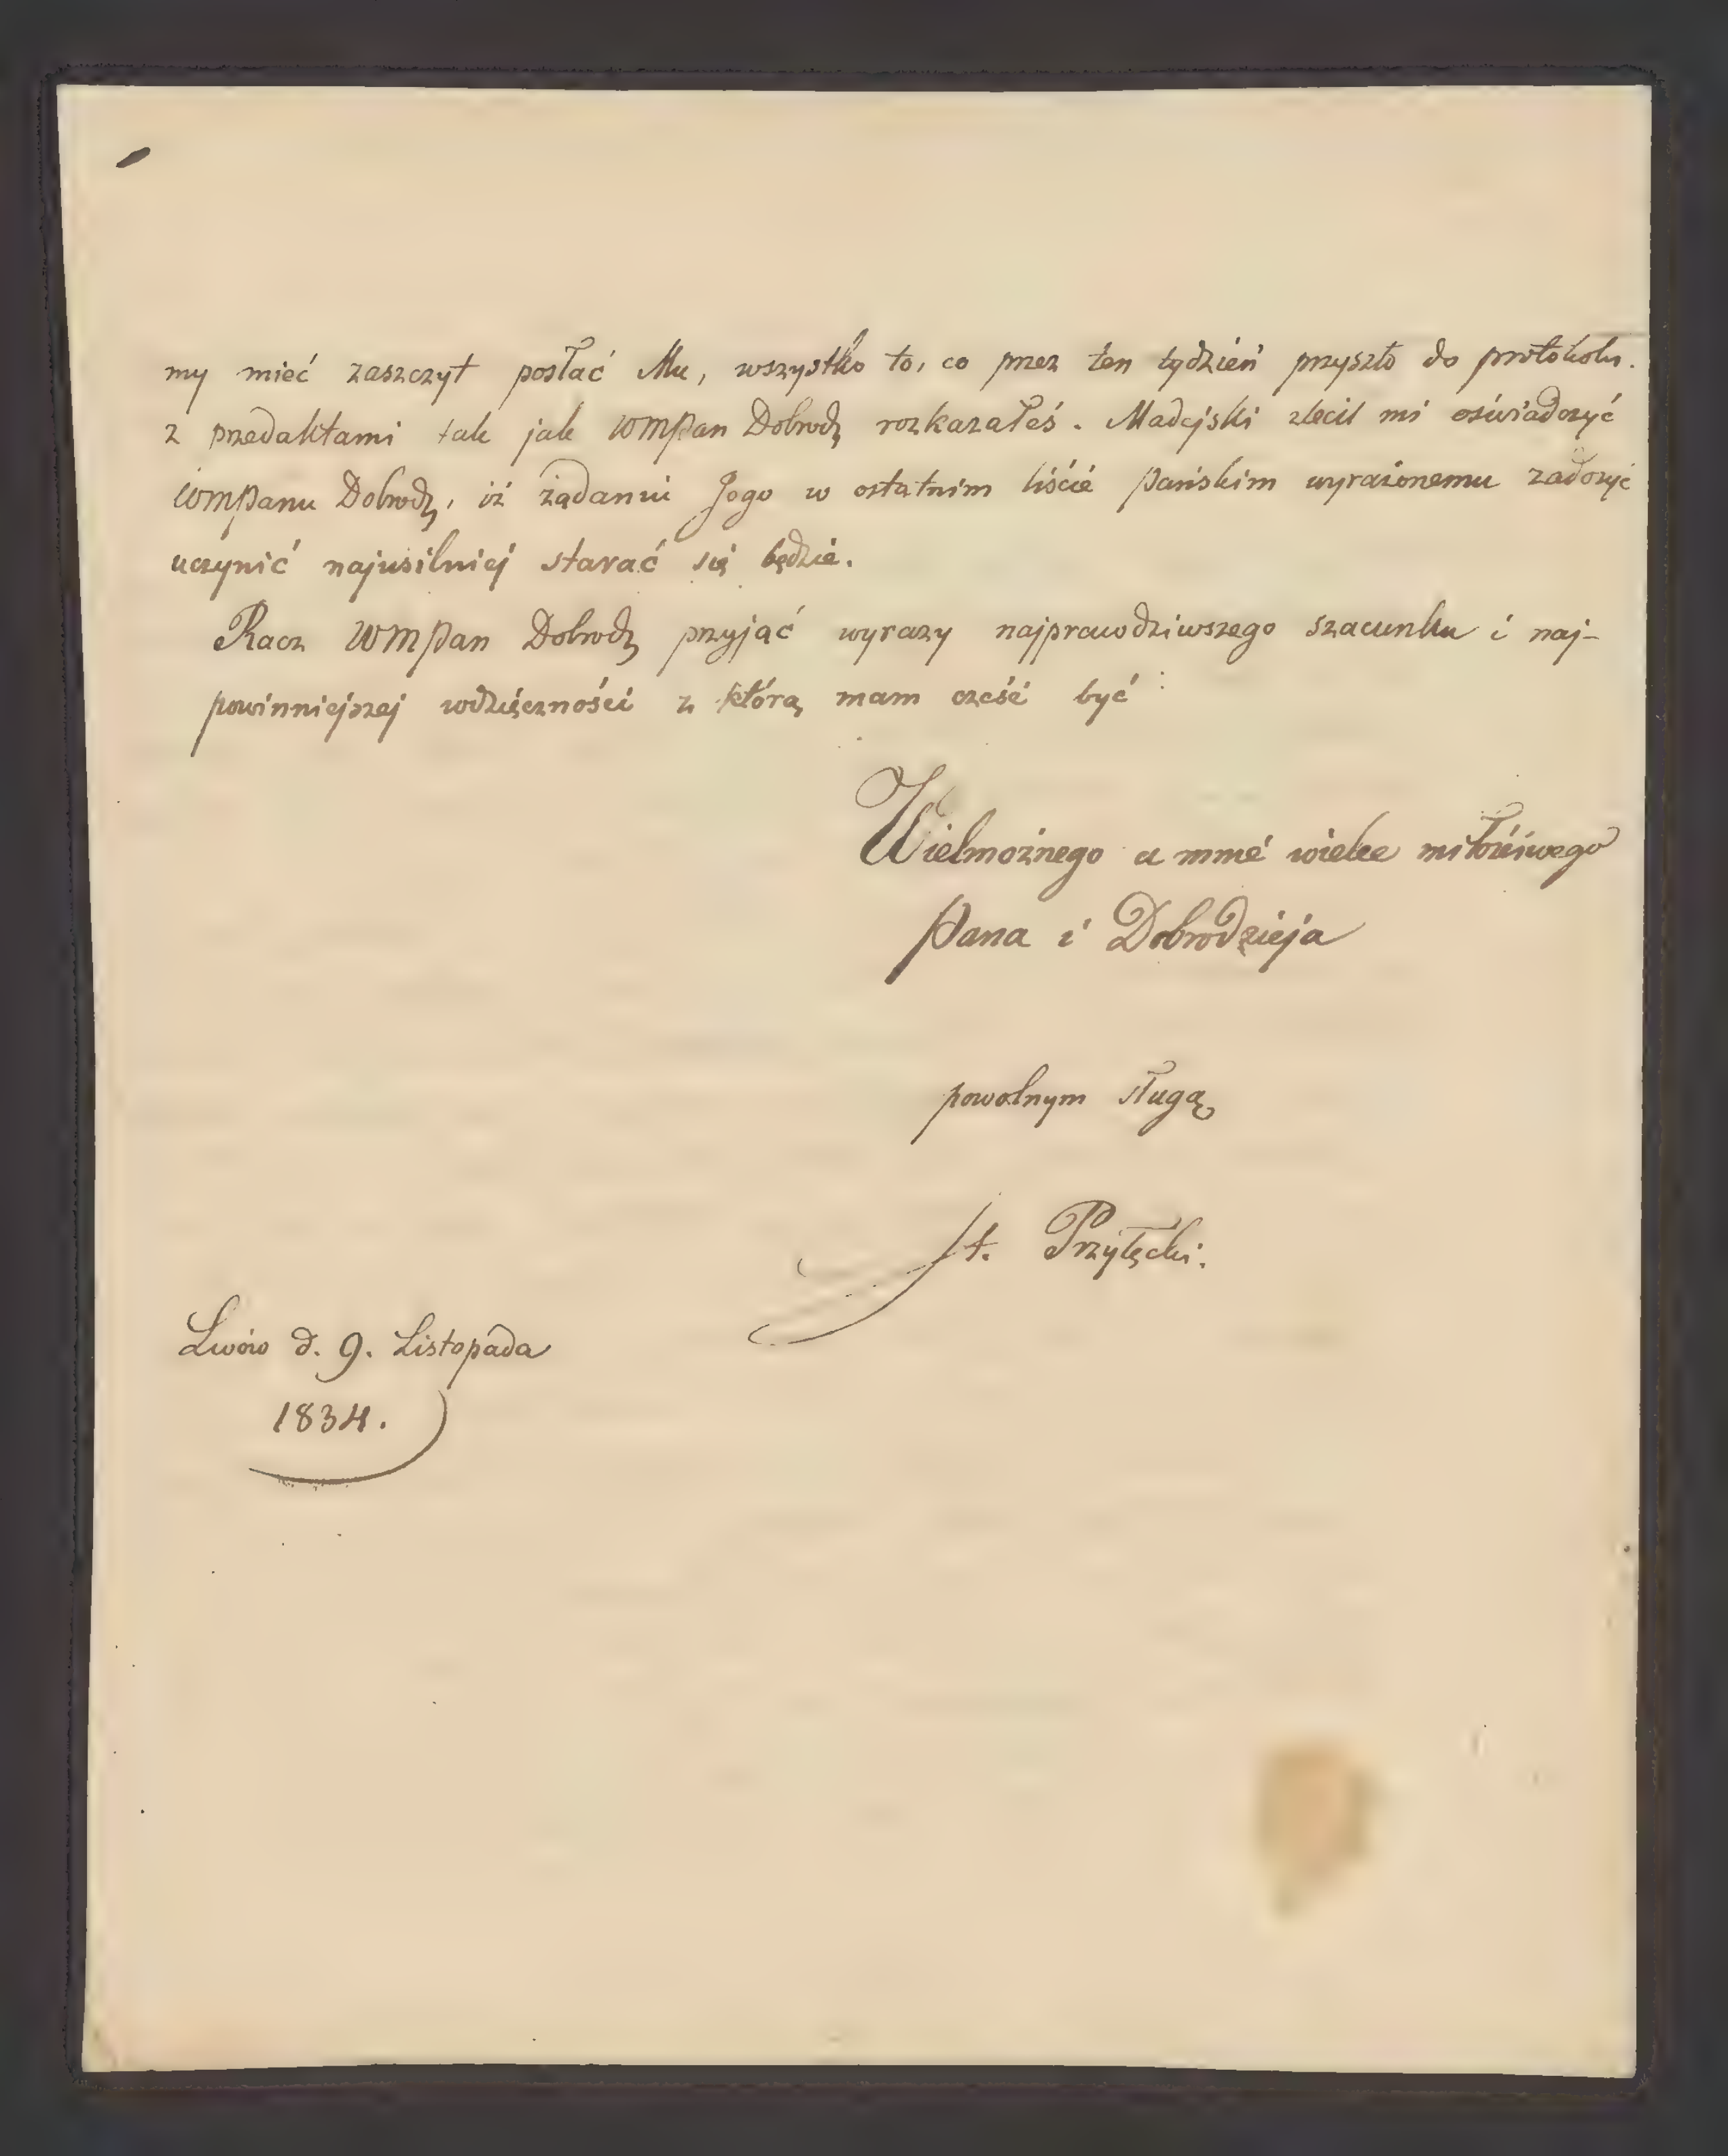 my mieć zaszczyt posłać Mu, wszystko to, co przez ten tydzień przyszło do protokołu.
z przedaktami tak jak WMPan Dobrodz rozkazałeś. Madejski zlecił mi oświadczyć
WMPanu Dobrodz, iż żądaniu Jego w ostatnim liście pańskim wyrażonemu zadosyć
uczynić najusilniej starać się będzie.
Racz WMPan Dobrodz przyjąć wyrazy najprawdziwszego szacunku i naj-
powinniejszej wdzięczności z którą mam cześć być :
Wielmożnego a mnie wielce miłościwego
Pana i Dobrodzieja
powolnym sługą
St. Przyłęcki.
Lwów d. 9. Listopada
1834.